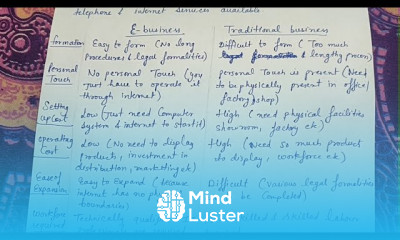 telephone & internet services available
E-business Traditional business
formation Easy to form (No long Difficult to form (Too much
procedures & legal formalities) & lengthy
Personal No personal Touch (you personal Touch is present (Need
Touch just have to operate it to be physically present in office/
through internet) factory/shop)
Setting Low (Just need Computer High (need physical facilities
up Cost System & internet to start it) showroom, factory etc)
operating Low (No need to display High (Need so much product
Cost products, investment in to display, workforce etc)
distribution, marketing etc)
Ease of Easy to Expand (because Difficult (various legal formalities
Expansion internet has no be completed)
boundaries)
Technically & skilled Labour
Mind
Luster